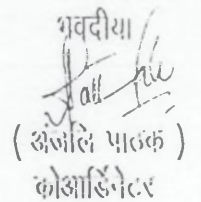 भवदीया
( अंजलि पाठक )
कोआर्डिनेटर